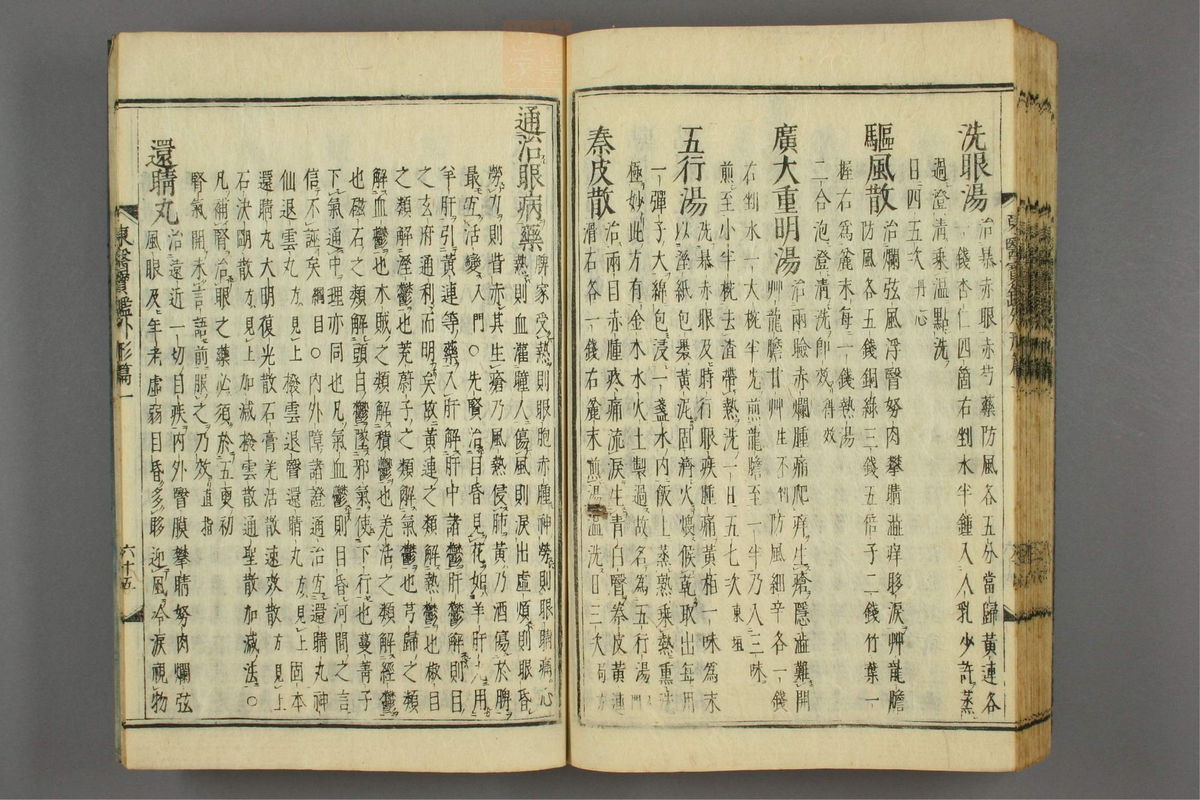 洗眼湯 治暴赤眼赤芍藥防風各五分當歸黃連各
一錢杏仁四箇右剉水半鍾入人乳少許蒸
過澄淸乘温點洗
日四五次 丹心
驅風散 治爛弦風浮瞖努肉攀睛澁痒眵淚艸龍膽
防風各五錢銅綠三錢五倍子二錢竹葉一
握右爲麁末每一錢熱湯
二合泡澄淸洗卽效 得效
廣大重明湯 治兩瞼赤爛腫痛爬痒生瘡隱澁難開
艸龍膽甘艸生不剉防風細辛各一錢
右剉水一大椀半先煎龍膽至一半乃入三味
煎至小半椀去渣帶熱洗一日五七次 東垣
五行湯 洗暴赤眼及時行眼疾腫痛黃栢一味爲末
以溼紙包裹黃泥固濟火煨候乾取出每用
一彈子大綿包浸一盞水內飯上蒸熟乘熱熏洗
極妙此方有金木水火土製過故名爲五行湯
秦皮散 治兩目赤腫疼痛流淚生靑白瞖秦皮黃連
滑石各一錢右麁末煎湯温洗日三次 局方
通治眼病藥 脾家受熱則眼胞赤腫神勞則眼睛痛心
熱則血灌瞳人傷風則淚出虛煩則眼昏
勞力則眥赤其生瘡乃風熱侵肺黃乃酒傷於脾
最宜活變 入門 ○先賢治目昏見花如羊肝丸用
羊肝引黃連等藥入肝解肝中諸鬱肝鬱解則目
之玄府通利而明矣故黃連之類解熱鬱也椒目
之類解溼鬱也茺蔚子之類解氣鬱也芎歸之類
解血鬱也木賊之類解積鬱也羌活之類解經鬱
也磁石之類解頭目鬱墜邪氣使下行也蔓菁子
下氣通中理亦同也凡氣血鬱則目昏河間之言
信不誣矣 綱目 ○內外障諸證通治宜還睛丸神
仙退雲丸方見上撥雲退瞖還睛丸方見上固本
還睛丸大明復光散石膏羌活散速效散方見上
石決明散方見上加減撥雲散通聖散加減法○
凡補腎治眼之藥必須於五更初
腎氣開未言語前服之乃效 直指
還睛丸 治遠近一切目疾內外瞖膜攀睛努肉爛弦
風眼及年老虛弱目昏多眵迎風冷淚視物
東醫寶鑑外形篇一
六十五